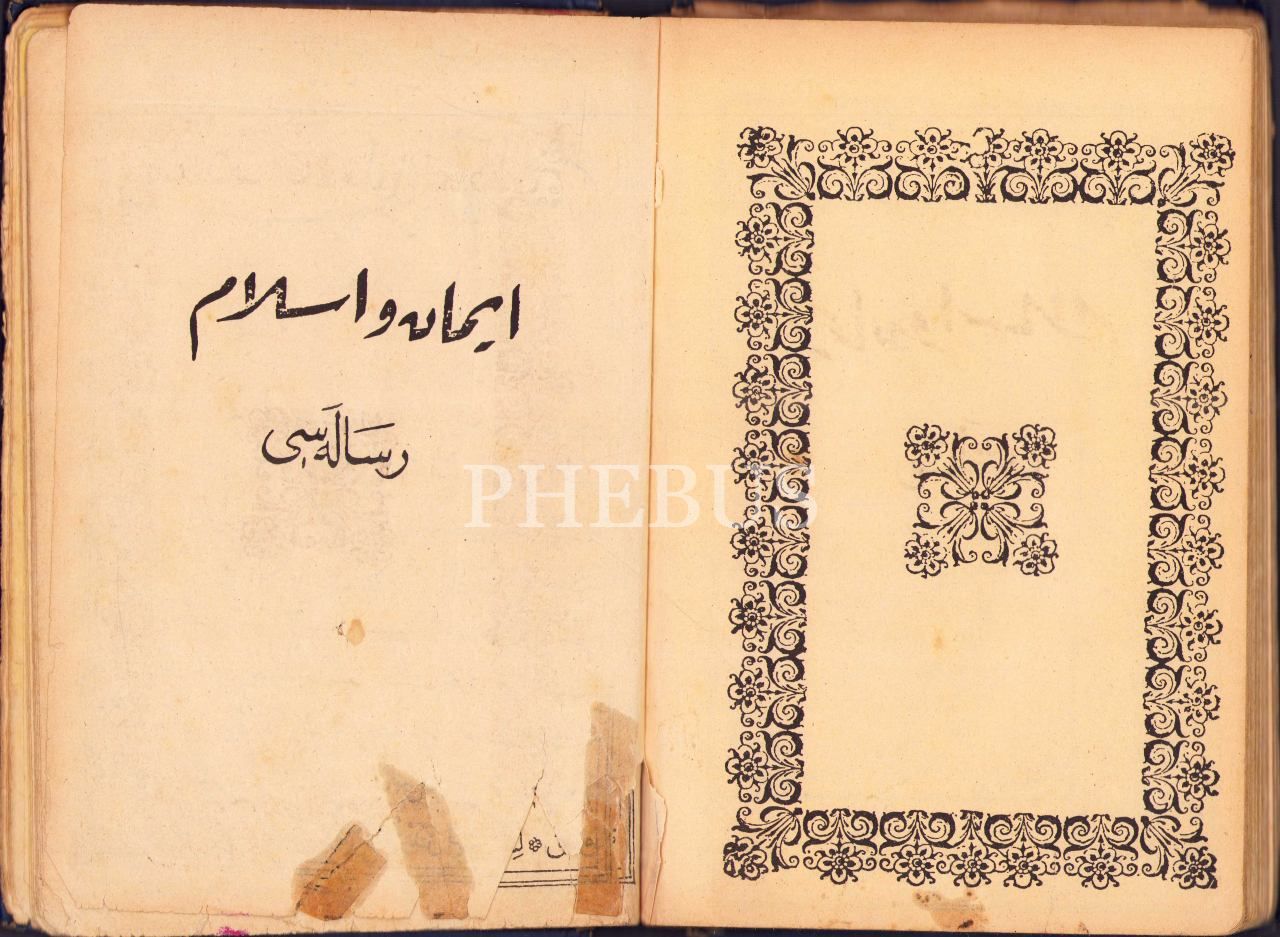 ایمان و اسلام
رسَالَه‌سِی
PHEBUS